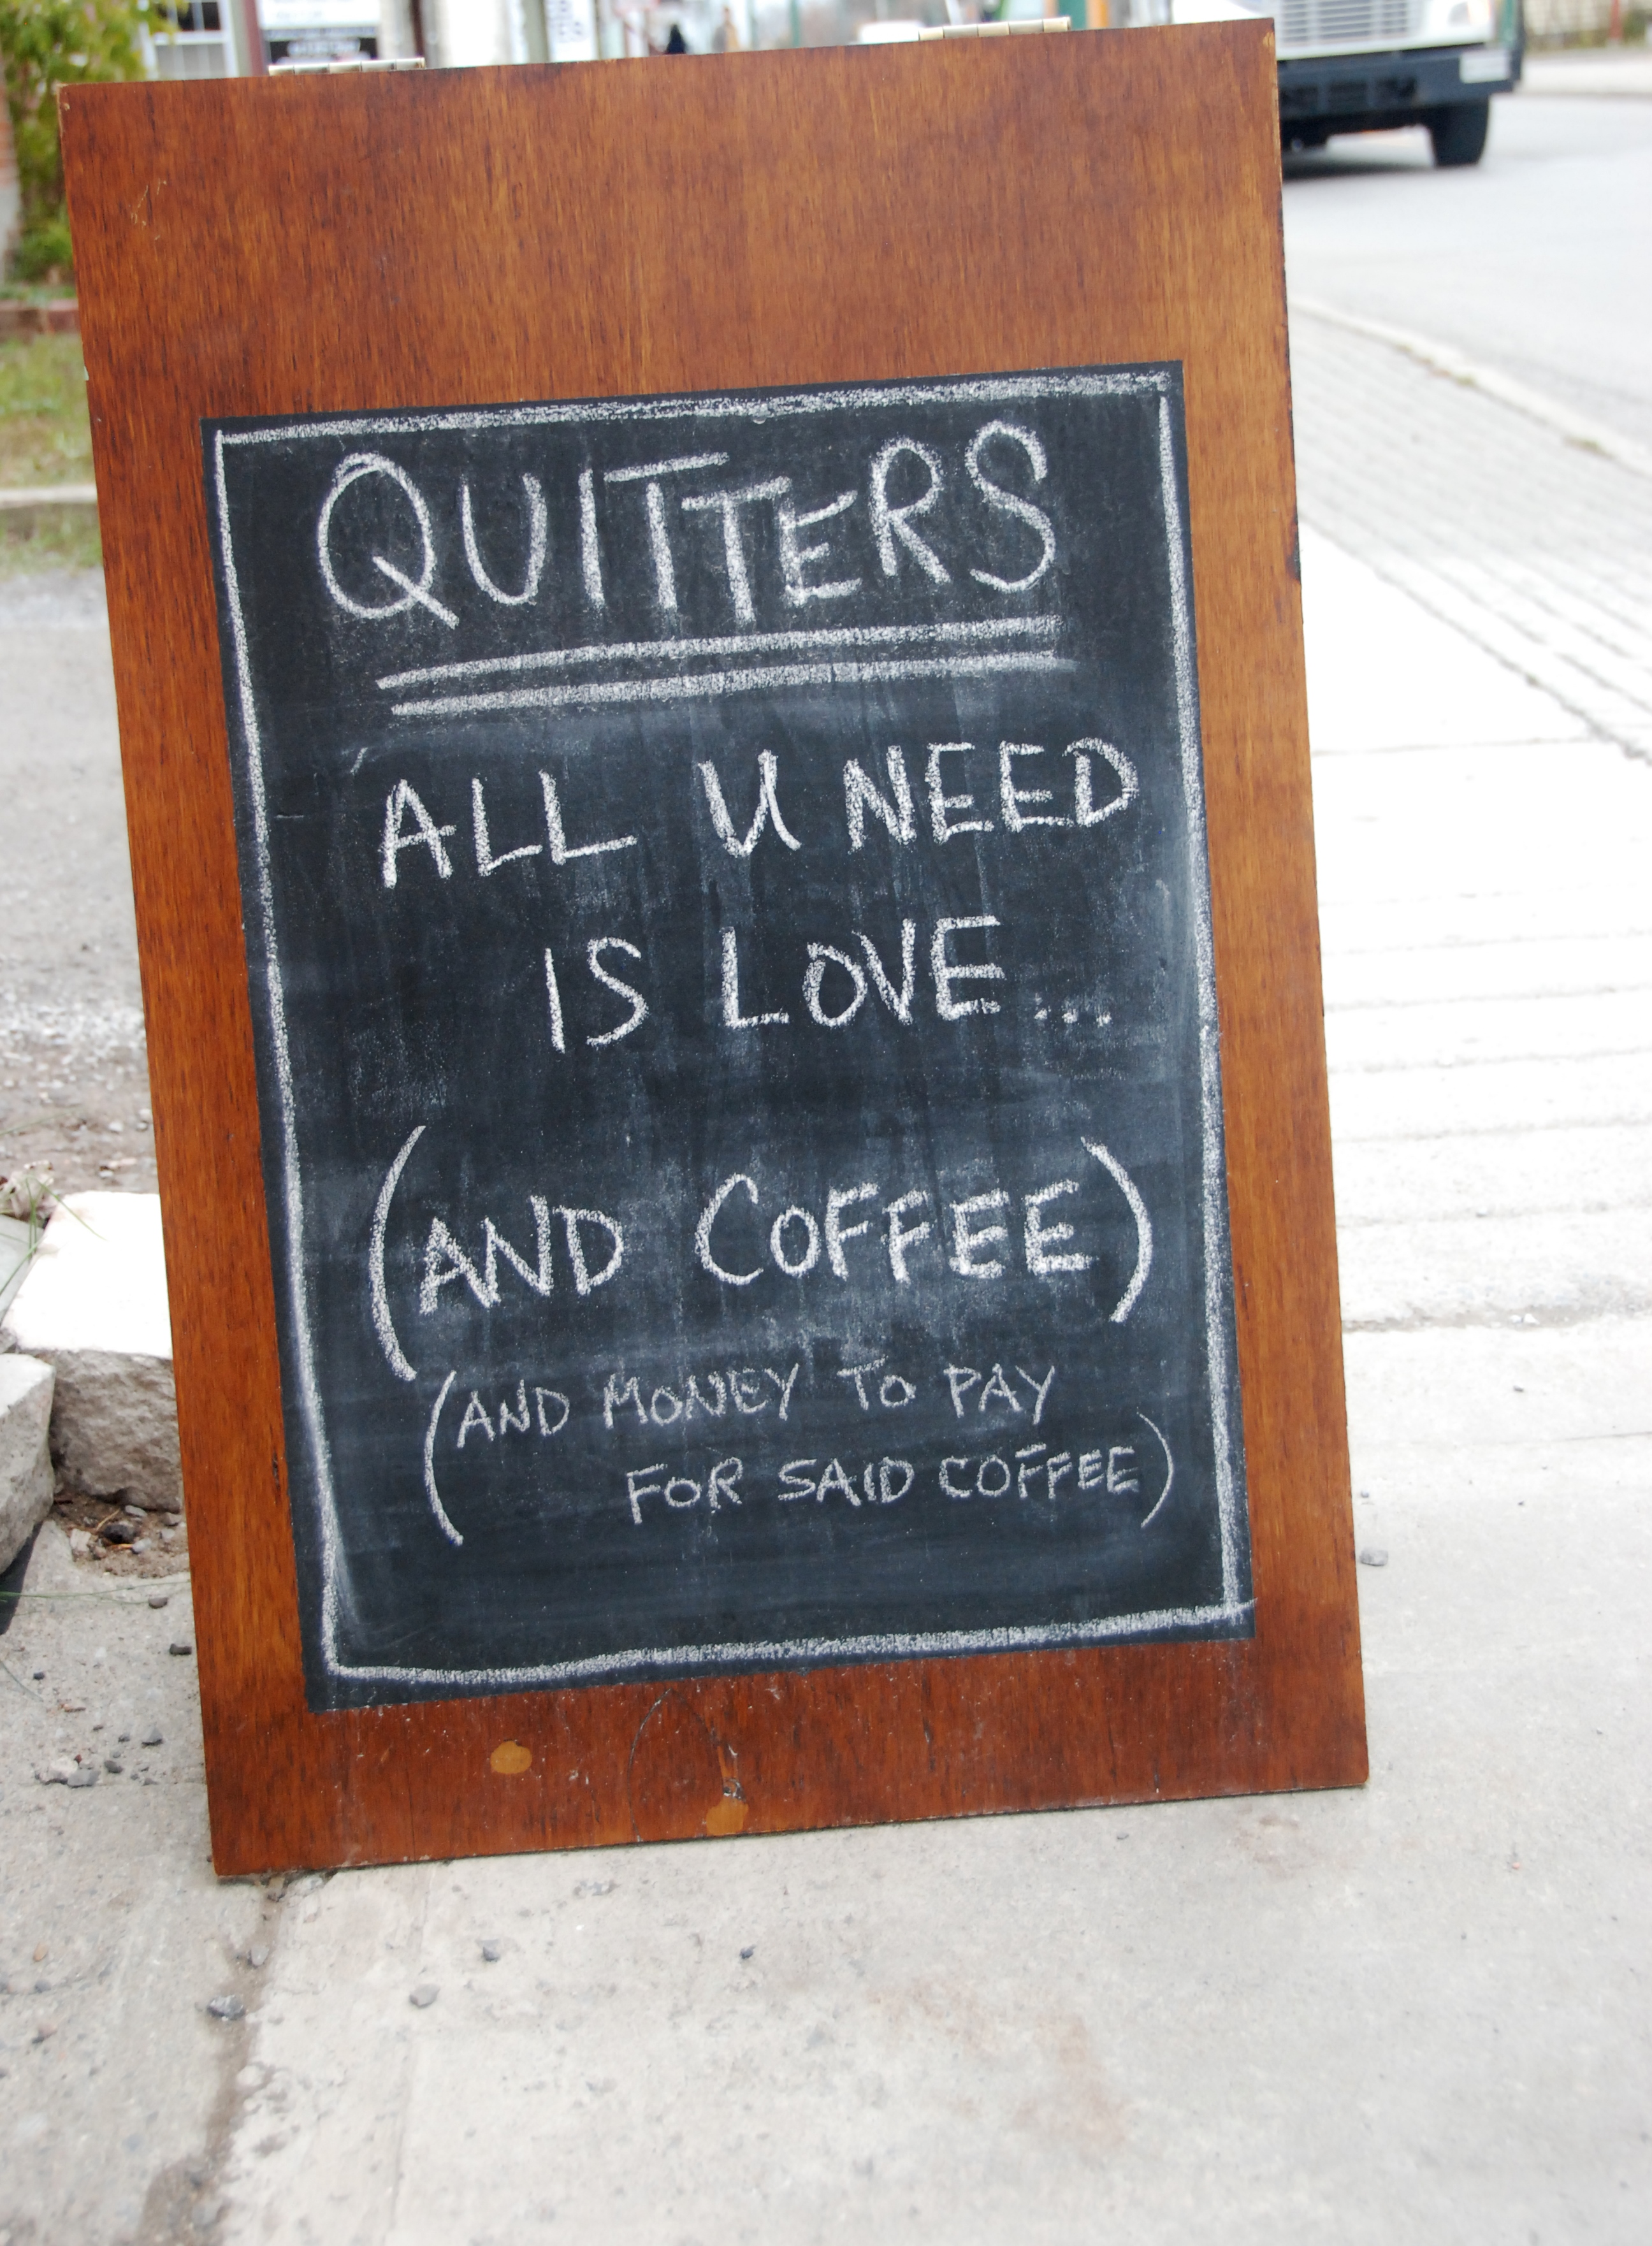 QUITTERS
ALL U NEED
IS LOVE...
(AND COFFEE)
(AND MONEY TO PAY
FOR SAID COFFEE)